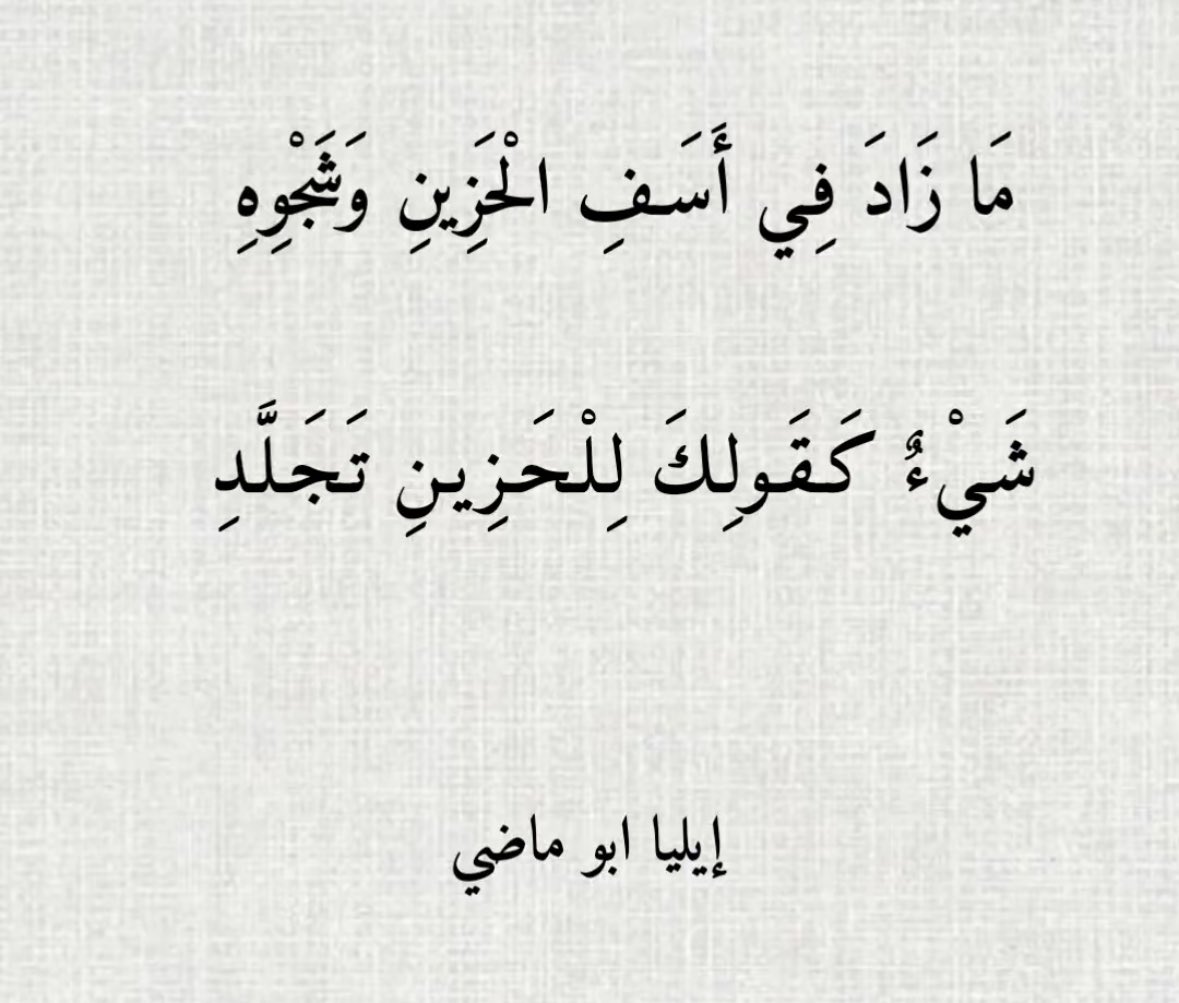 مَا زَادَ فِي أَسَفِ الْحَزِينِ وَشَجْوِهِ
شَيْءٌ كَقَولِكَ لِلْحَزِينِ تَجَلَّدِ
إيليا ابو ماضي